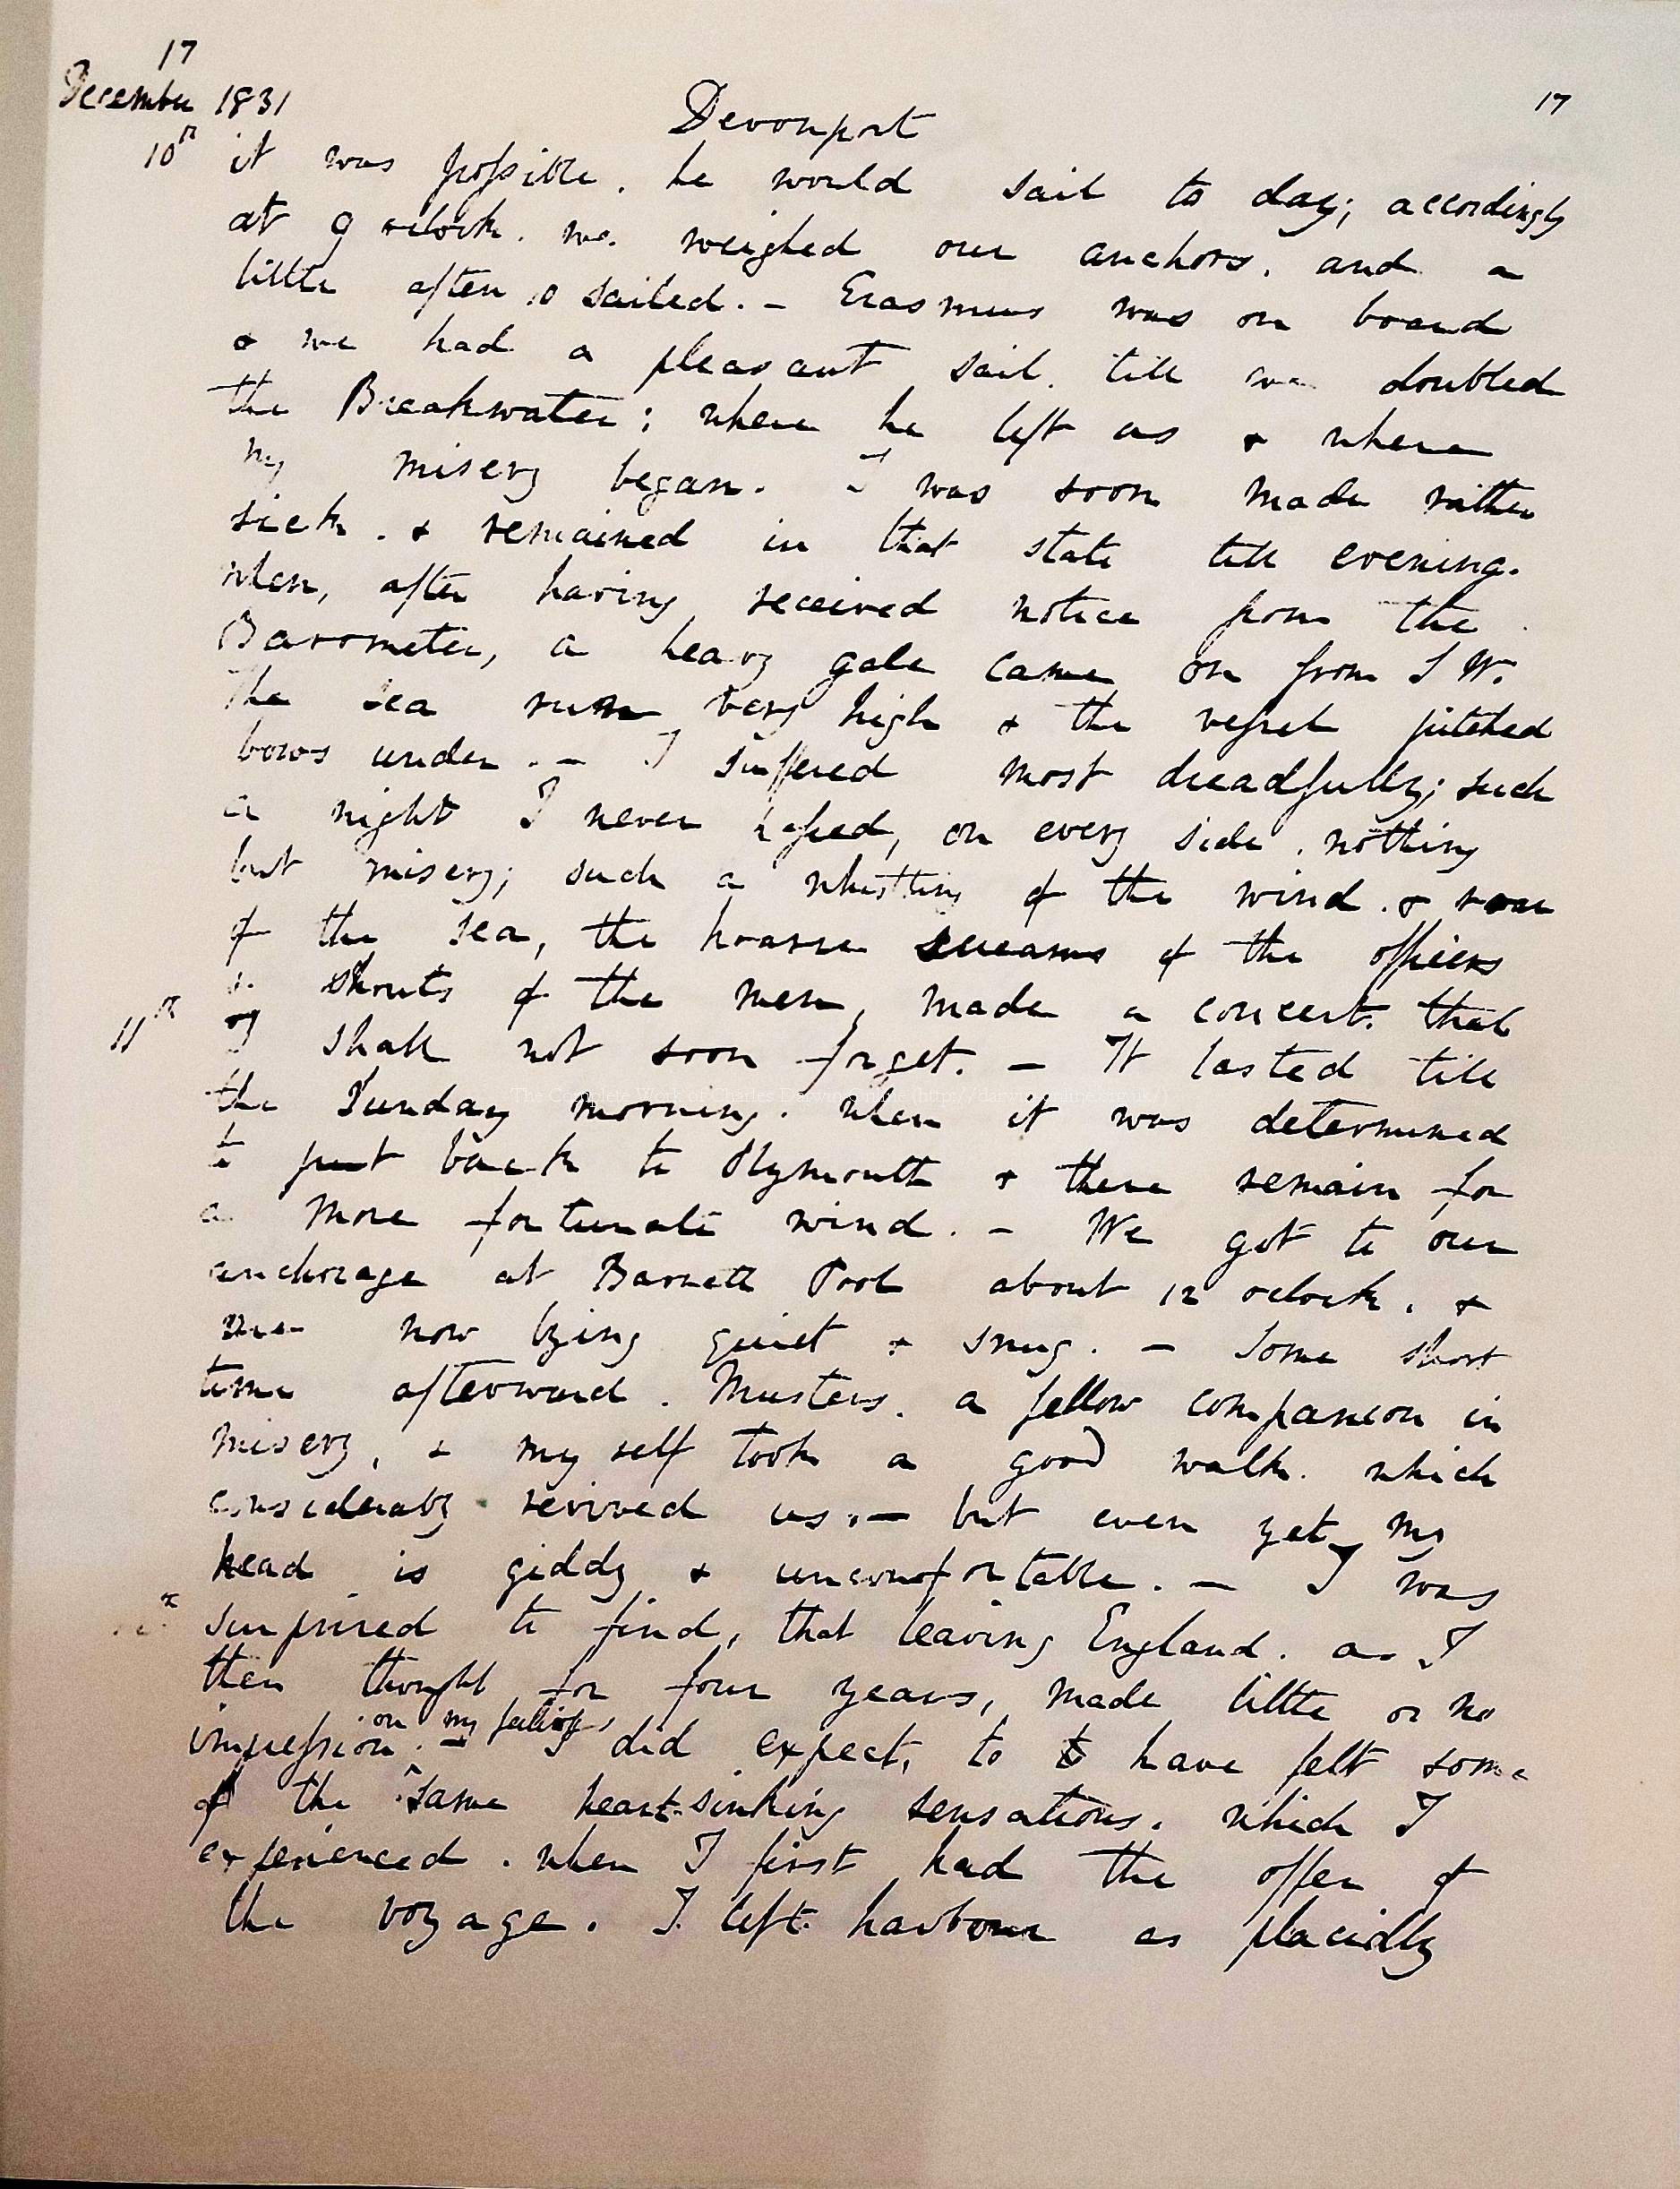 17
December 1831
Devonport
17
10th it was possible. he would sail to day; accordingly
at 9 oclock. we. weighed our anchors. and a
little after 10 sailed. — Erasmus was on board
& we had a pleasant sail. till we doubled
the Breakwater; where he left us & where
my misery began. I was soon made rather
sick. & remained in that state till evening.
when, after having received notice from the
Barometer, a heavy gale came on from S W.
The sea run very high & the vessel pitched
bows under. — I suffered most dreadfully; such
a night I never passed, on every side. nothing
but misery; such a whistling of the wind. & roar
of the sea, the hoarse screams of the officers
& shouts of the men, made a concert. that
11th I shall not soon forget. — It lasted till
the Sunday morning. when it was determined
to put back to Plymouth & there remain for
a more fortunate wind. — We got to our
anchorage at Barnett Pool about 12 oclock. &
are now lying quiet & snug. — Some short
time afterward. Musters. a fellow companion in
misery, & my self took a good walk. which
considerably revived us. — but even yet, my
head is giddy & uncomfortable. — I was
surprised to find, that leaving England. as I
then thought for four years, made little or no
on my feelings
impression. — I did expect, to have felt some
of the same heart-sinking sensations. which I
experienced. when I first had the offer of
the voyage. I left harbour as placidly